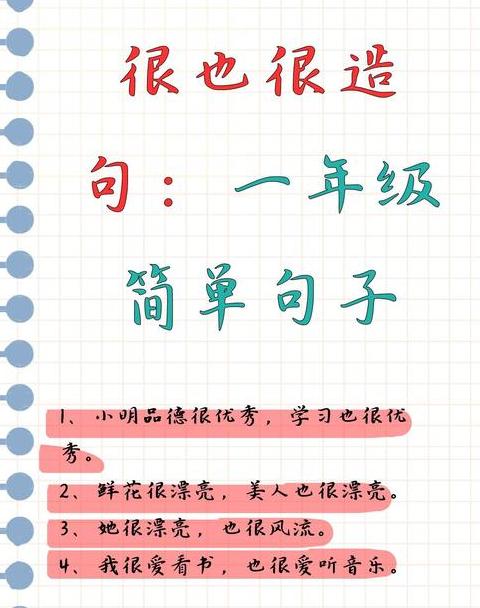 很也很造
句：一年级
简单句子
1、小明品德很优秀，学习也很优
秀。
2、鲜花很漂亮，美人也很漂亮。
3、她很漂亮，也很风流。
4、我很爱看书，也很爱听音乐。